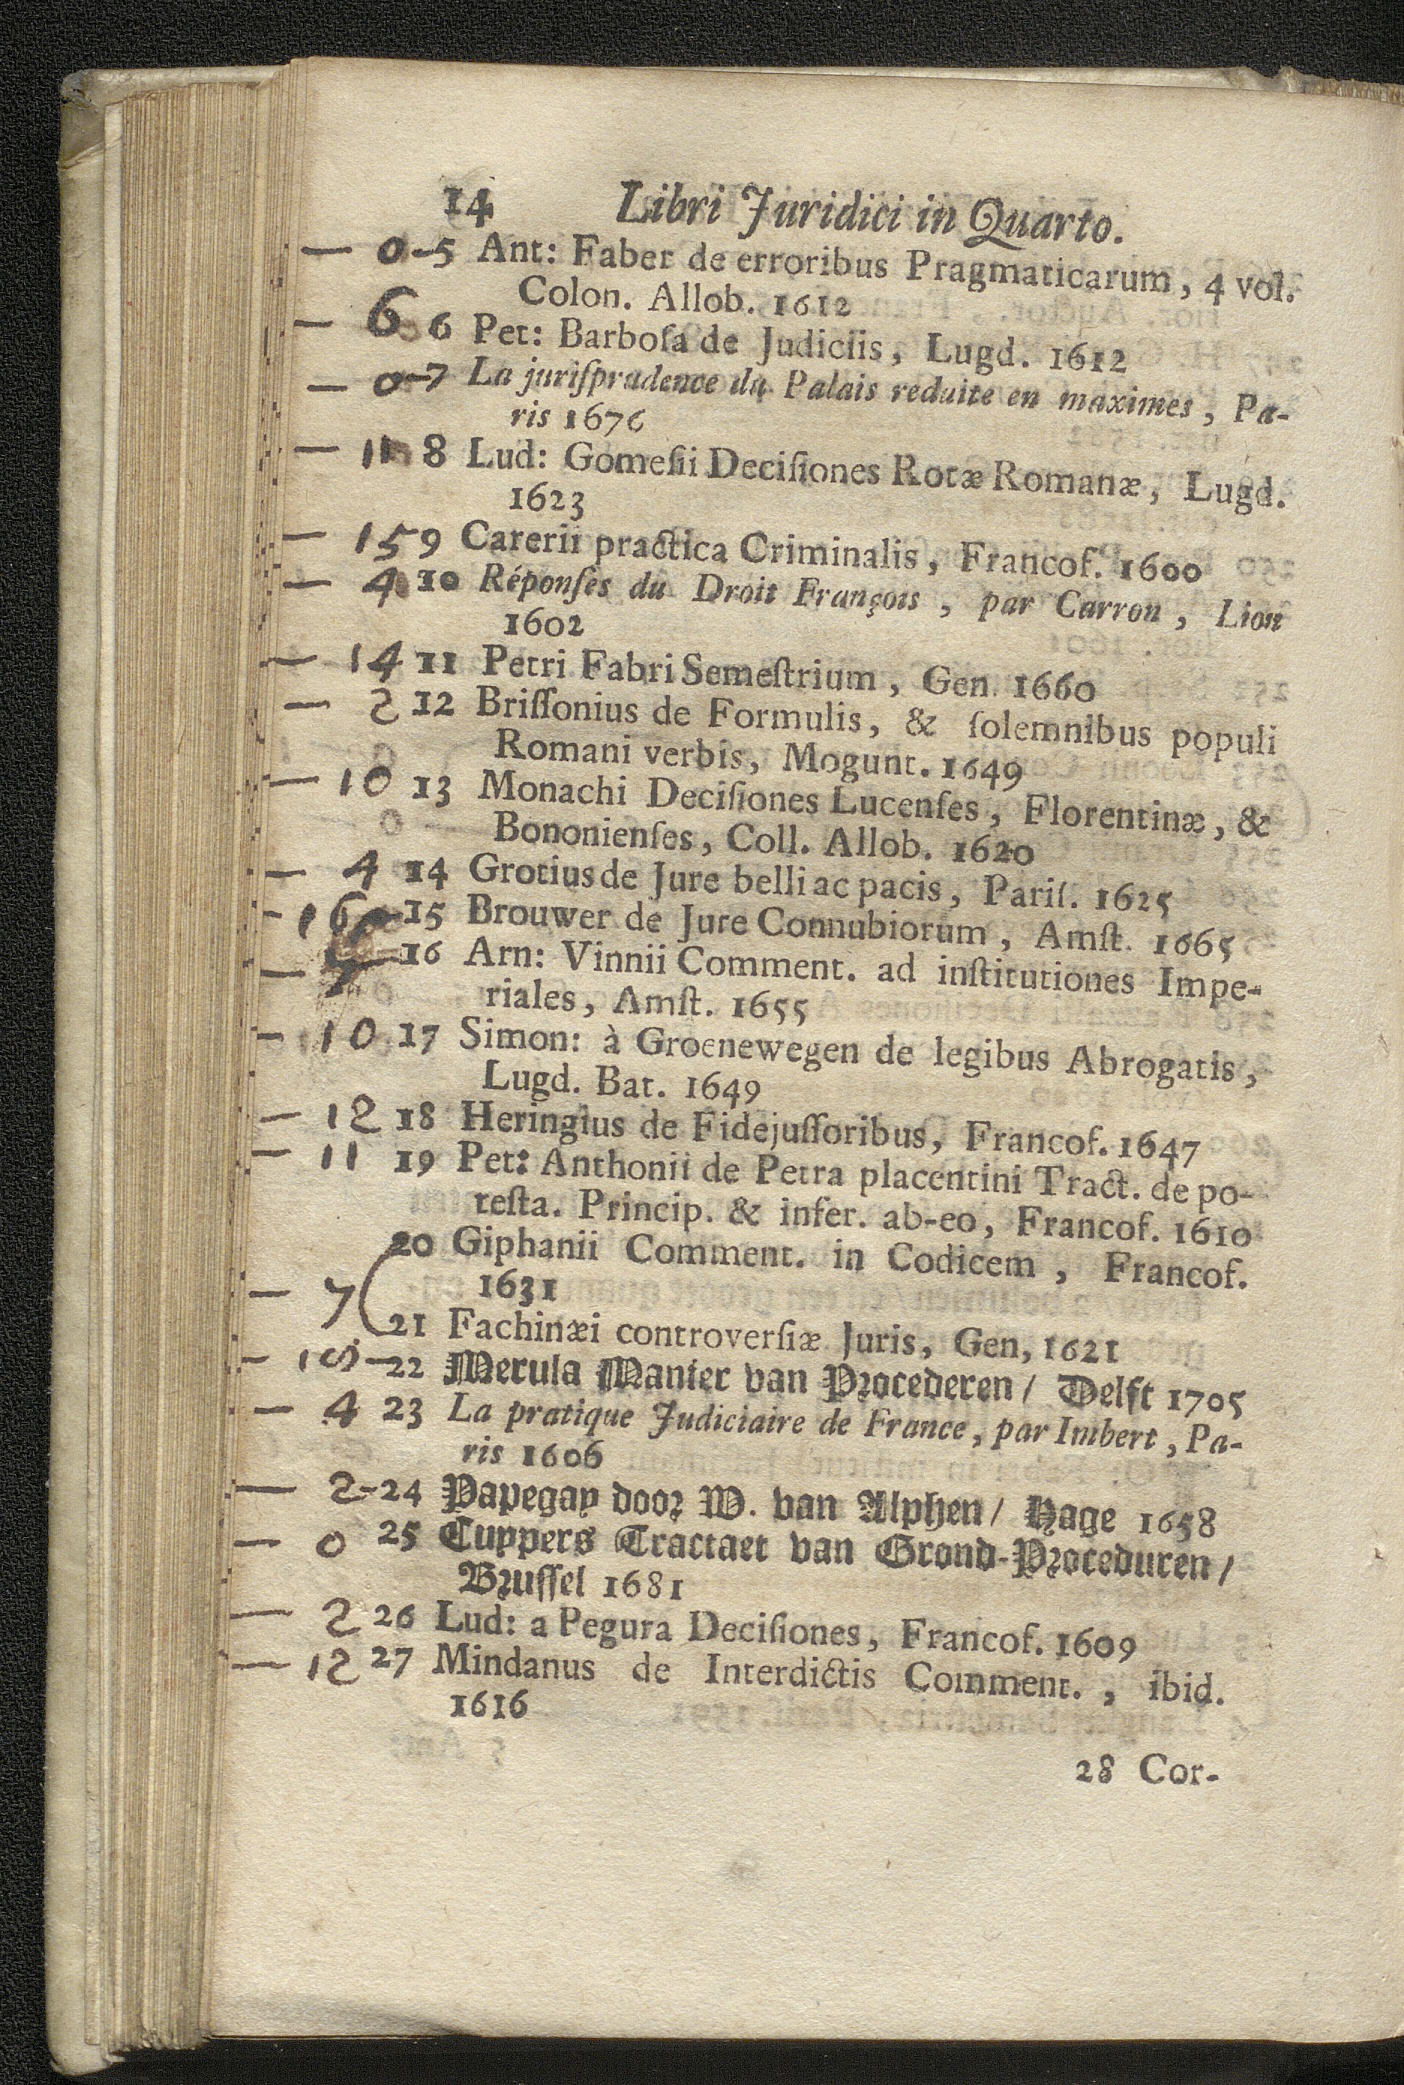 14 Libri Juridici in Quarto.
— 0-5 Ant: Faber de erroribus Pragmaticarum, 4 vol.
Colon. Allob. 1612
— 6 6 Pet: Barboſa de Judiciis, Lugd. 1612
— 0-7 La juriſprudence du Palais reduite en maximes, Pa-
ris 1676
— 11 8 Lud: Gomeſii Deciſiones Rotæ Romanæ, Lugd.
1623
— 15 9 Carerii practica Criminalis, Francof. 1600
— 4 10 Réponſes du Droit François, par Carron, Lion
1602
— 14 11 Petri Fabri Semeſtrium, Gen. 1660
— 2 12 Briſſonius de Formulis, & ſolemnibus populi
Romani verbis, Mogunt. 1649
— 10 13 Monachi Deciſiones Lucenſes, Florentinæ, &
Bononienſes, Coll. Allob. 1620
— 4 14 Grotius de Jure belli ac pacis, Pariſ. 1625
- 16 -15 Brouwer de Jure Connubiorum, Amſt. 1665
— 7 -16 Arn: Vinnii Comment. ad inſtitutiones Impe-
riales, Amſt. 1655
— 10 17 Simon: à Groenewegen de legibus Abrogatis,
Lugd. Bat. 1649
— 12 18 Heringius de Fidejuſſoribus, Francof. 1647
— 11 19 Pet: Anthonii de Petra placentini Tract. de po-
teſta. Princip. & infer. ab-eo, Francof. 1610
20 Giphanii Comment. in Codicem, Francof.
— 7 ( 1631
21 Fachinæi controverſiæ Juris, Gen, 1621
-22 Merula Manier van Procederen / Delft 1705
— 4 23 La pratique Judiciaire de France, par Imbert, Pa-
ris 1606
— 2-24 Papegay door W. van Alphen / Hage 1658
— 0 25 Cuppers Tractaet van Grond-Proceduren /
Bruſſel 1681
— 2 26 Lud: a Pegura Deciſiones, Francof. 1609
— 12 27 Mindanus de Interdictis Comment., ibid.
1616
28 Cor-